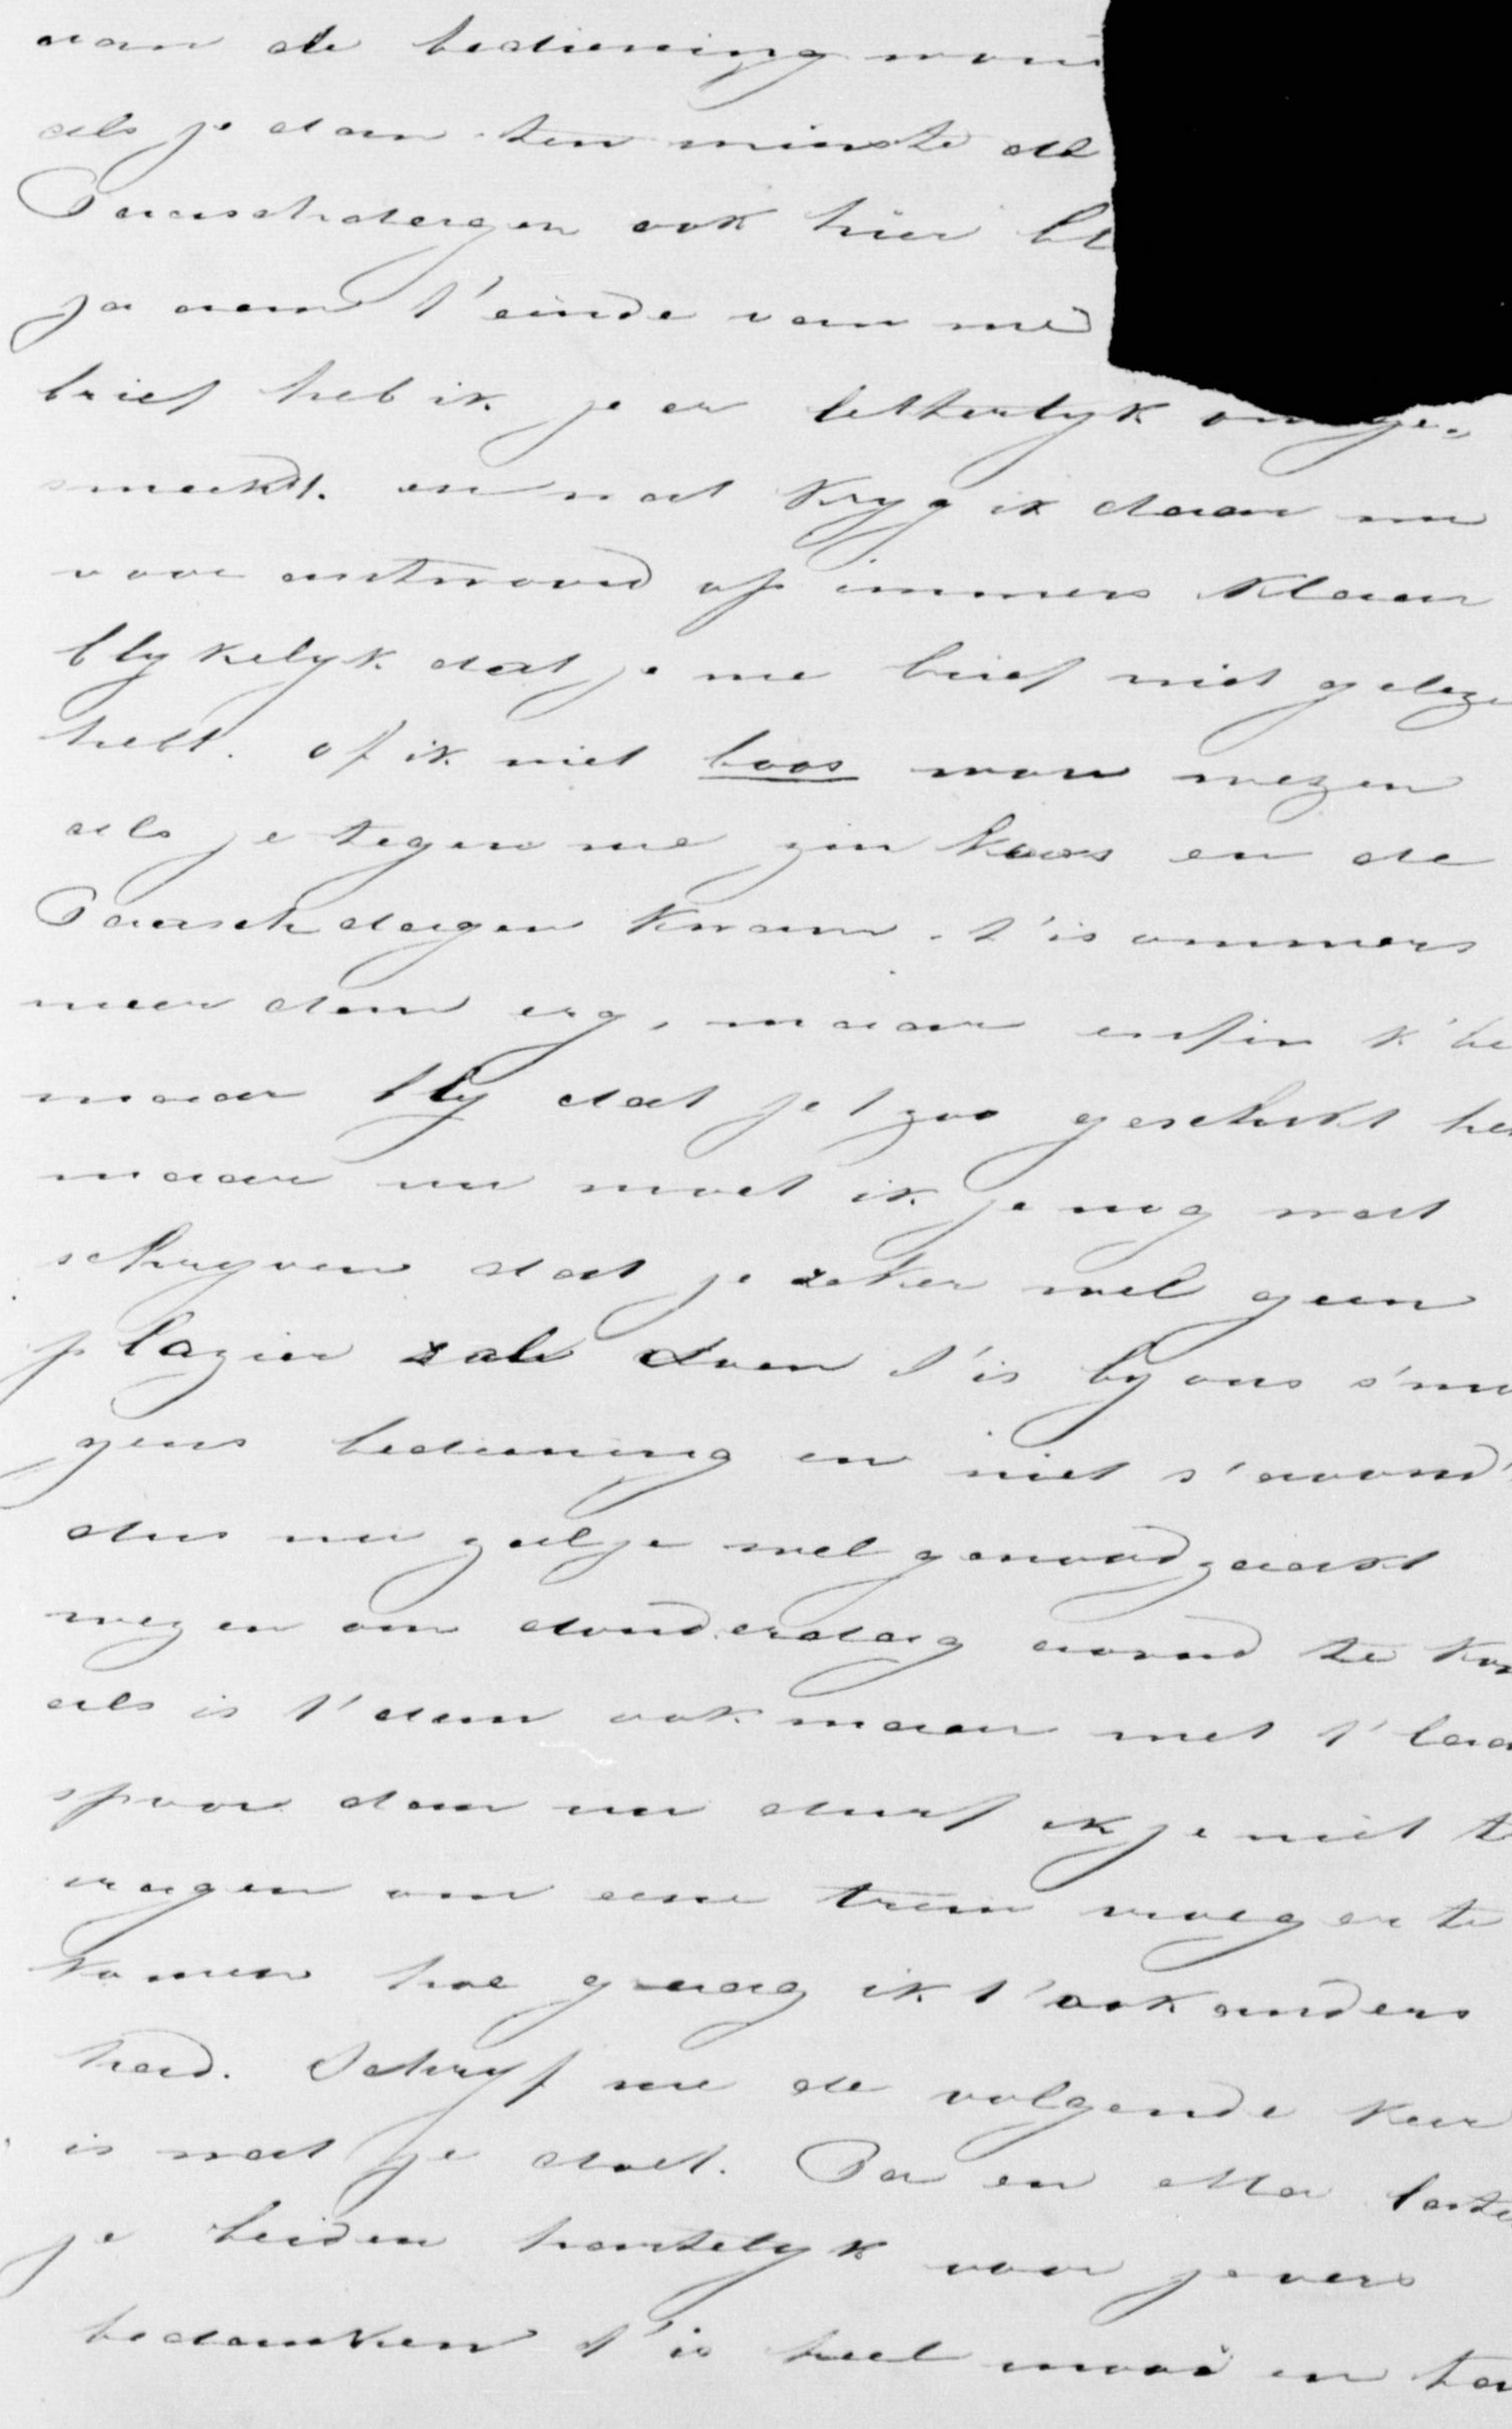 van de bediening
als je dan ten minste de
Paaschdagen ook hier bl
ja aan t'einde van me
brief heb ik je er letterlyk omge„
smeekt. en wat kryg ik daar nu
voor antwoord op immers klaar
blykelyk dat je me brief niet geleze
hebt. of ik niet boos wou wezen
als je tegen me zin koos en de
Paaschdagen kwam. t'is ommers
meer dan erg, maar enfin k'be
maar bly dat je t zoo geschikt he
maar nu moet ik je nog wat
schryven dat je zeker wel geen
plazier zal doen t'is by ons s'mo
gens bediening en niet s'avond's
dus nu zal je wel genoodzaakt
wezen om donderdag avond te kom
als is t'dan ook maar met t'laa
spoor dan nu durf ik je niet te
vragen om eene trein vroeger te
komen hoe graag ik t'ook anders
had. Schryf me de volgende keer
is wat je doet. Pa en Ma laten
je beiden hartelyk voor je vers
bedanken t'is heel mooi en